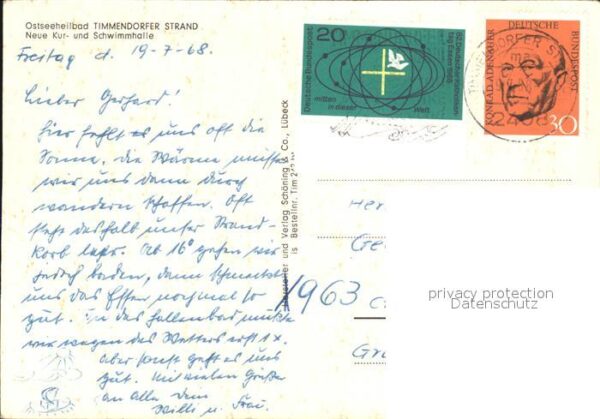 Ostseeheilbad TIMMENDORFER STRAND
Neue Kur- und Schwimmhalle
Freitag d. 19-7-68.
Lieber Gerhard!
Hier fehlt es uns oft die
Sonne. Die Wärme müssen
wir uns dann durch
wandern schaffen. Oft
steht deshalb unser Strand-
korb leer. Ab 16° gehen wir
jedoch baden, dann schmeckt
uns das Essen nochmal so
gut. In das Hallenbad mußten
wir wegen des Wetters erst 1 x.
Aber sonst geht es uns
gut. Mit vielen Grüßen
an alle dem
Willi u. Frau.
Hersteller und Verlag Schöning & Co., Lübeck
Bestellnr. Tim
20
Deutsche Bundespost
82. Deutscher Katholikentag Essen 1968
mitten in dieser Welt
DEUTSCHE BUNDESPOST
KONRAD ADENAUER
30
2408
Her
Ge
1963
Gr
privacy protection
Datenschutz